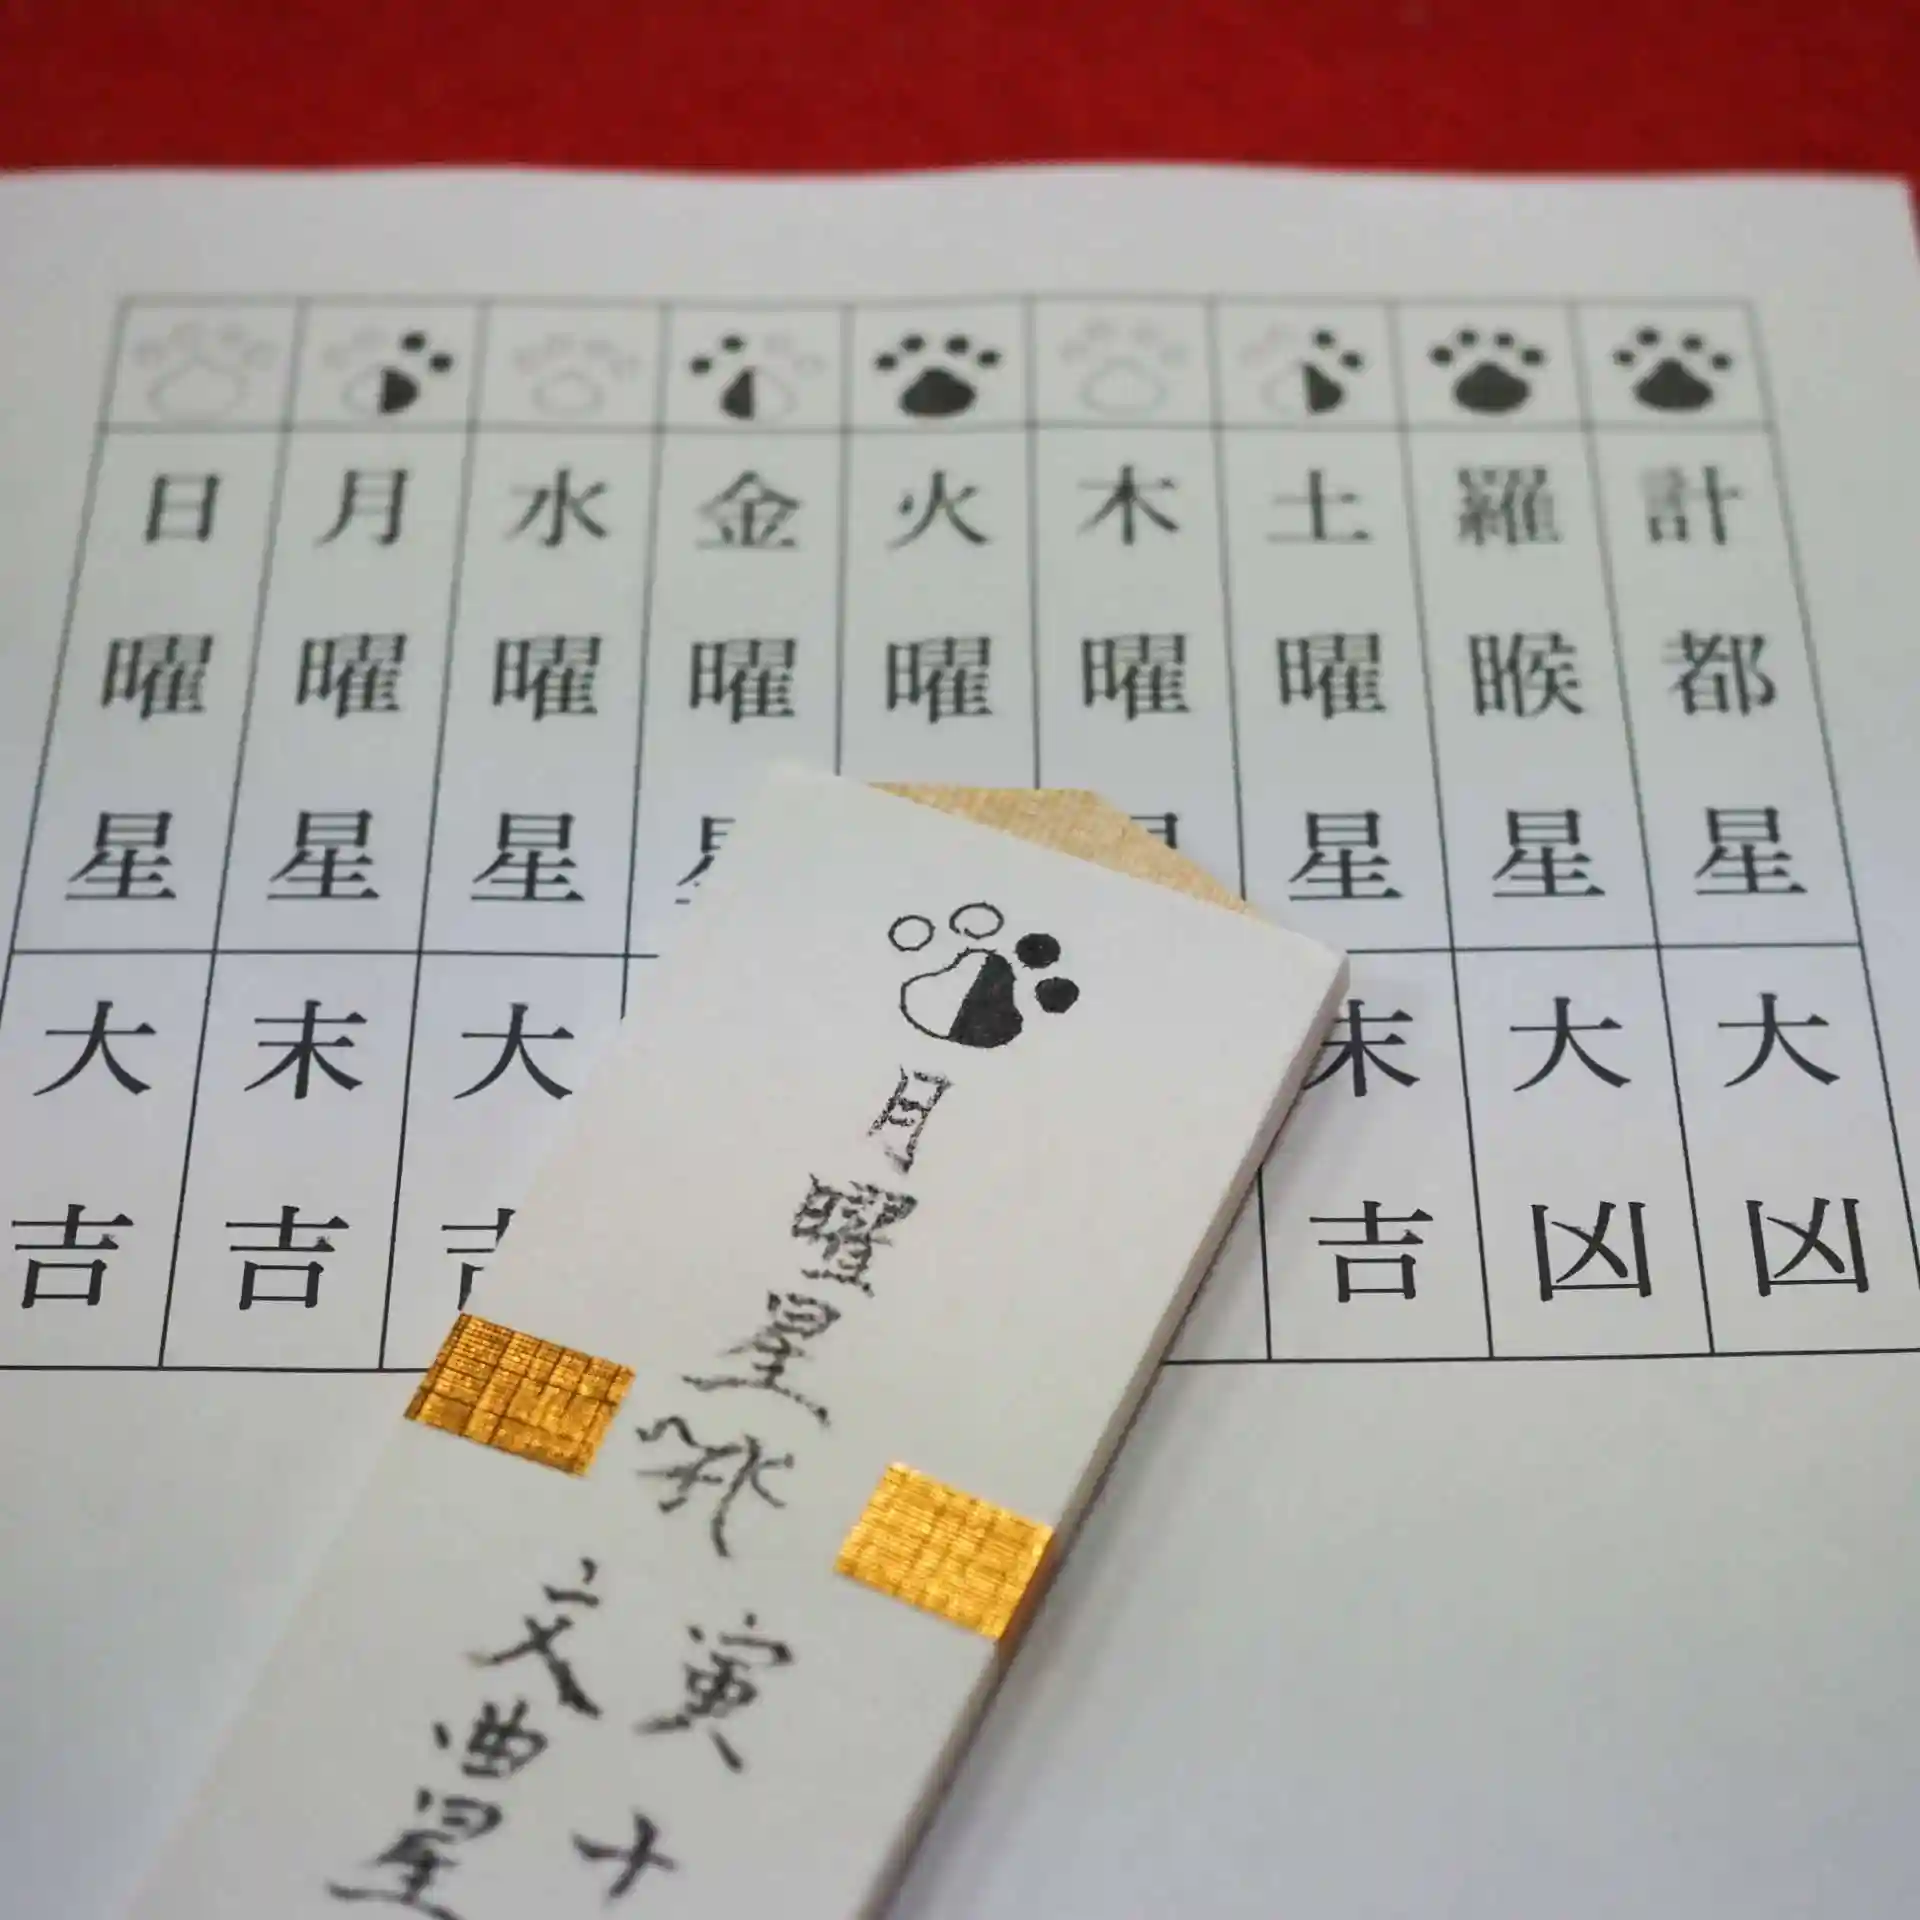 日曜星 大吉
月曜星 末吉
水曜星 大
金曜
火曜
木曜
土曜星 末吉
羅睺星 大凶
計都星 大凶
月曜星
寅
十
文曲星